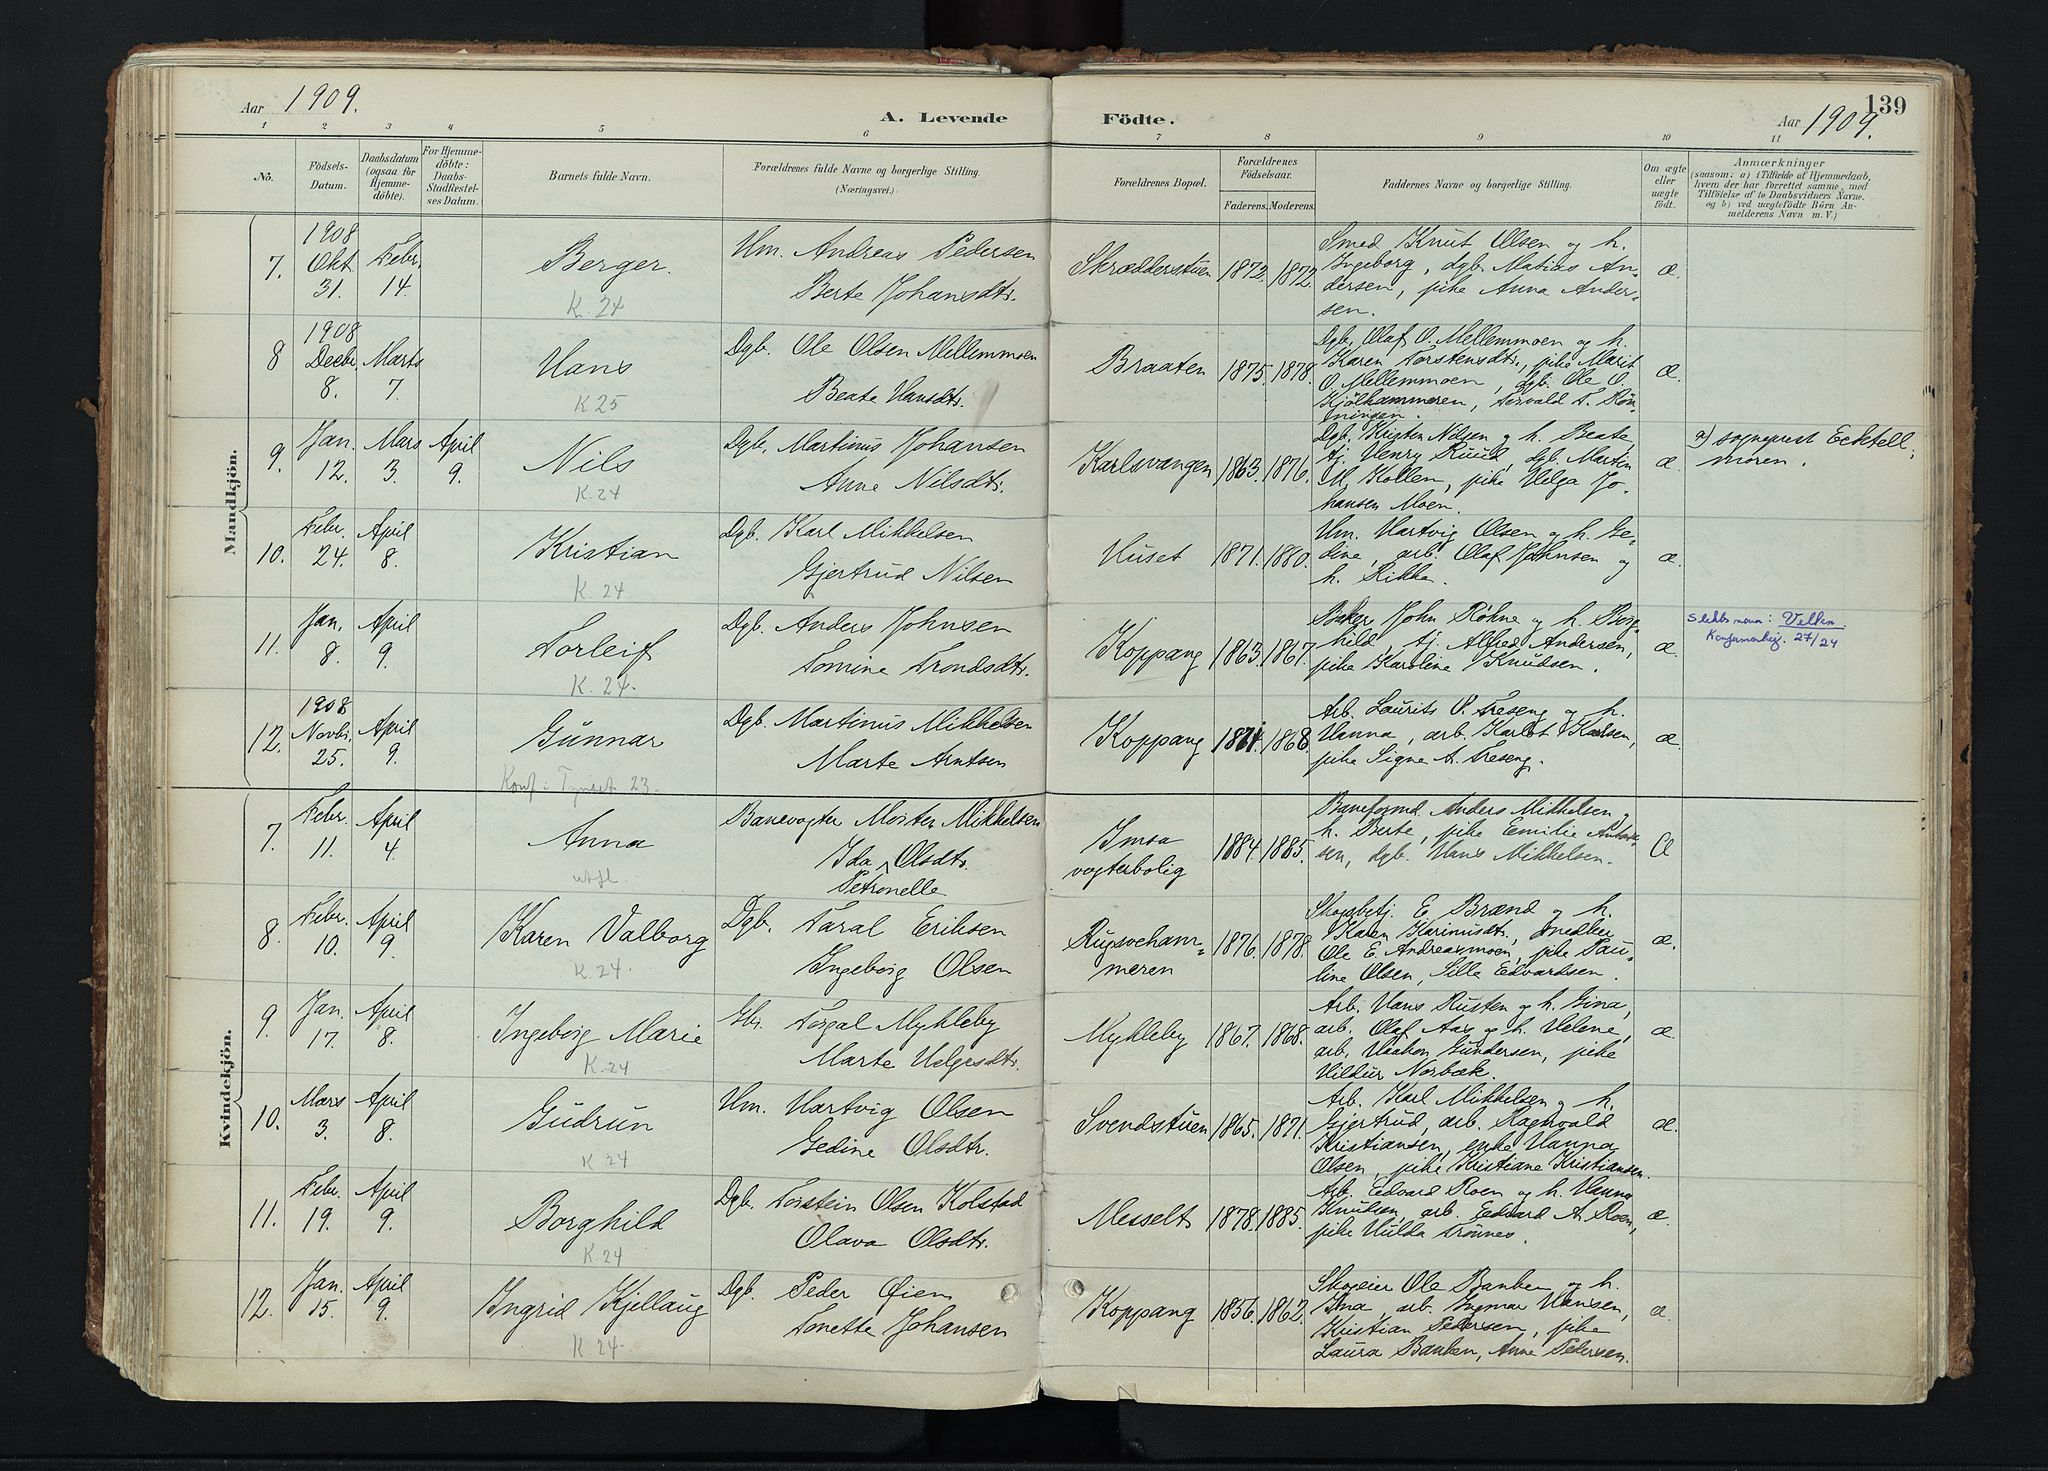 Aar 1909.
A. Levende Födte.
Aar 1909.
139
1 2 3 4 5 6 7 8 9 10 11
No.
Födsels-Datum.
Daabsdatum (ogsaa for Hjemmedöbte).
For Hjemmedöbte: Daabs-Stadfæstelses Datum.
Barnets fulde Navn.
Forældrenes fulde Navne og borgerlige Stilling. (Næringsvei.)
Forældrenes Bopæl.
Forældrenes Födselsaar.
Faderens. Moderens.
Faddernes Navne og borgerlige Stilling.
Om ægte eller uægte födt.
Anmærkninger
(saasom: a) i Tilfælde af Hjemmedaab, hvem der har forrettet samme, med Tilföielse af to Daabsvidners Navne, og b) ved uægtefödte Börn Anmelderens Navn m. V.)
Mandkjön.
7. 1908 Okt. 31. Febr. 14. Berger. K. 24
Um. Andreas Pedersen
Berte Johansdtr.
Skrædderstuen 1872. 1872.
Smed Knut Olsen og h.
Ingeborg, dgb. Matias An-
dersen, pike Anna Ander-
sen.
æ.
8 1908 Decbr. 8. Marts 7. Hans K 25
Dgb. Ole Olsen Mellemmoen
Beate Hansdtr.
Braaten 1875. 1878.
Dgb. Olaf O. Mellemmoen og h.
Karen Torstensdtr., pike Marit
O. Mellemmoen, dgb. Ole O.
Kjölhammeren, Torvald T. Rön-
ningen.
æ.
9. Jan. 12. Mars 3. April 9. Nils K. 24
Dgb. Martinus Johansen
Anne Nilsdtr.
Karlsvangen 1863. 1870.
Dgb. Kristen Nilsen og h. Beate
tj. Henry Ruud, dgb. Martin
M. Kollen, pike Helga Jo-
hansen Moen.
æ.
a) sogneprest
10. Febr. 24. April 8. Kristian K. 24
Dgb. Karl Mikkelsen
Gjertrud Nilsen
Huset 1871. 1880.
Um. Hartvig Olsen og h. Ge-
dine, arb. Olaf Johnsen og
h. Rikke.
æ.
11. Jan. 8. April 9. Torleif K. 24
Dgb. Anders Johnsen
Tomine Trondsdtr.
Koppang 1863. 1867.
Baker John Röhne og h. Borg-
hild, tj. Alfred Andersen,
pike Karoline Knudsen.
æ.
Slektsnavn:
27/24
12. 1908 Novbr. 25. April 9. Gunnar
Konf. i Tynset 23.
Dgb. Martinus Mikkelsen
Marte Arntsen
Koppang 1871. 1868.
Arb. Laurits O. Treseng og h.
Hanna, arb. Karlot Karlsen,
pike Signe A. Treseng.
æ.
Kvindekjön.
7. Febr. 11. April 4. Anna utfl.
Banevogter Morten Mikkelsen
Ida Olsdtr.
Petronelle
Imsa
vogterbolig 1884. 1885.
Baneformd. Anders Mikkelsen og
h. Berte, pike Emilie Ander-
sen, dgb. Hans Mikkelsen.
Æ
8. Febr. 10. April 9. Karen Valborg K. 24
Dgb. Taral Eriksen
Ingeborg Olsen
Rugsveham-
meren 1876. 1878.
Skogbetj. E. Brænd og h.
Karen Karinusdtr., snedker
Ole E. Andreasmoen, pike Pau-
line Olsen, Sille Edvardsen.
æ.
9. Jan. 17. April 8. Ingeborg Marie K. 24
Gbr. Torgal Mykleby
Marte Helgesdtr.
Mykleby 1867. 1868.
Arb. Hans Rusten og h. Gina,
arb. Olaf Aas og h. Helene,
arb. Haakon Gundersen, pike
Hildur Norbæk.
æ.
10. Mars 3. April 8. Gudrun K. 24
Um. Hartvig Olsen
Gedine Olsdtr.
Svendstuen 1865. 1871.
Arb. Karl Mikkelsen og h.
Gjertrud, arb. Ragnvald
Kristiansen, enke Hanna
Olsen, pike Kristiane Kristiansen.
æ.
11. Febr. 19. April 9. Borghild K. 24
Dgb. Torstein Olsen Kolstad
Olava Olsdtr.
Messelt 1878. 1885.
Arb. Edvard Roen og h. Hanna
Knudsen, arb. Edvard A. Roen,
pike Hulda Trönnes.
æ.
12. Jan. 15. April 9. Ingrid Kjellaug K. 24
Dgb. Peder Øien
Tonette Johansen
Koppang 1856. 1862.
Skogeier Ole Banken og h.
Ina, arb. Ingmar Hansen,
Kristian Pedersen, pike
Laura Banken, Anne Pedersen.
æ.